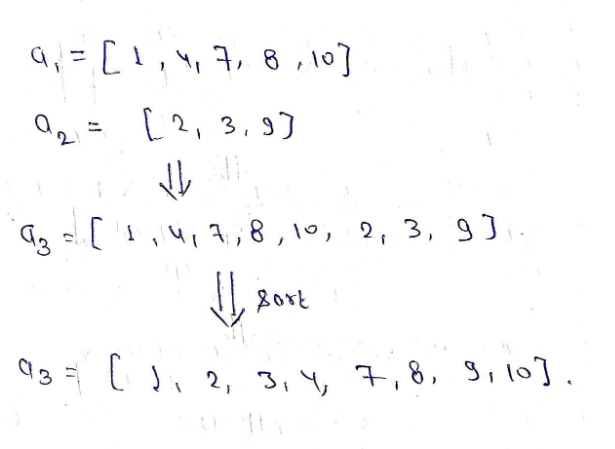 a₁ = [ 1 , 4, 7, 8 , 10]
a₂ = [ 2, 3, 9]
⇓
a₃ = [ 1 , 4, 7, 8 , 10, 2, 3, 9 ] .
⇓ Sort
a₃ = [ 1, 2, 3, 4, 7, 8, 9, 10] .